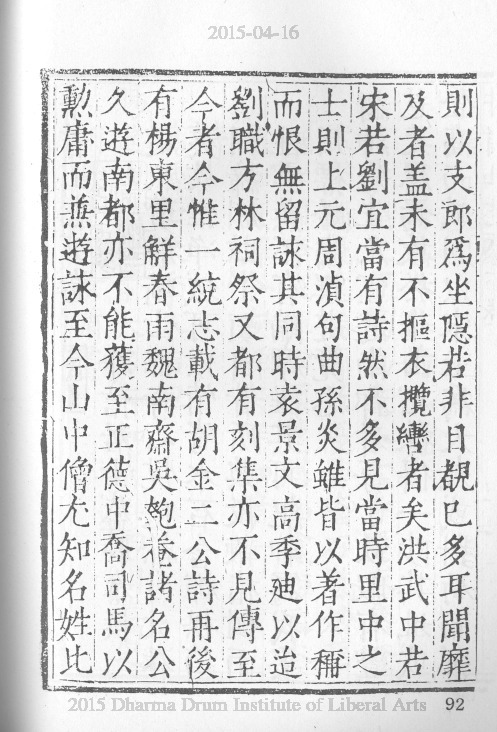 2015-04-16
則以支郎爲坐隱若非目覩已多耳聞靡
及者盖未有不摳衣攬轡者矣洪武中若
宋若劉宜當有詩然不多見當時里中之
士則上元周湞句曲孫炎雖皆以著作稱
而恨無留詠其同時袁景文高季廸以迨
劉職方林祠祭又都有刻集亦不見傳至
今者今惟一統志載有胡金二公詩再後
有楊東里解春雨魏南齋吳匏菴諸名公
久遊南都亦不能獲至正德中喬司馬以
勲庸而兼遊詠至今山中僧尤知名姓比
2015 Dharma Drum Institute of Liberal Arts 92